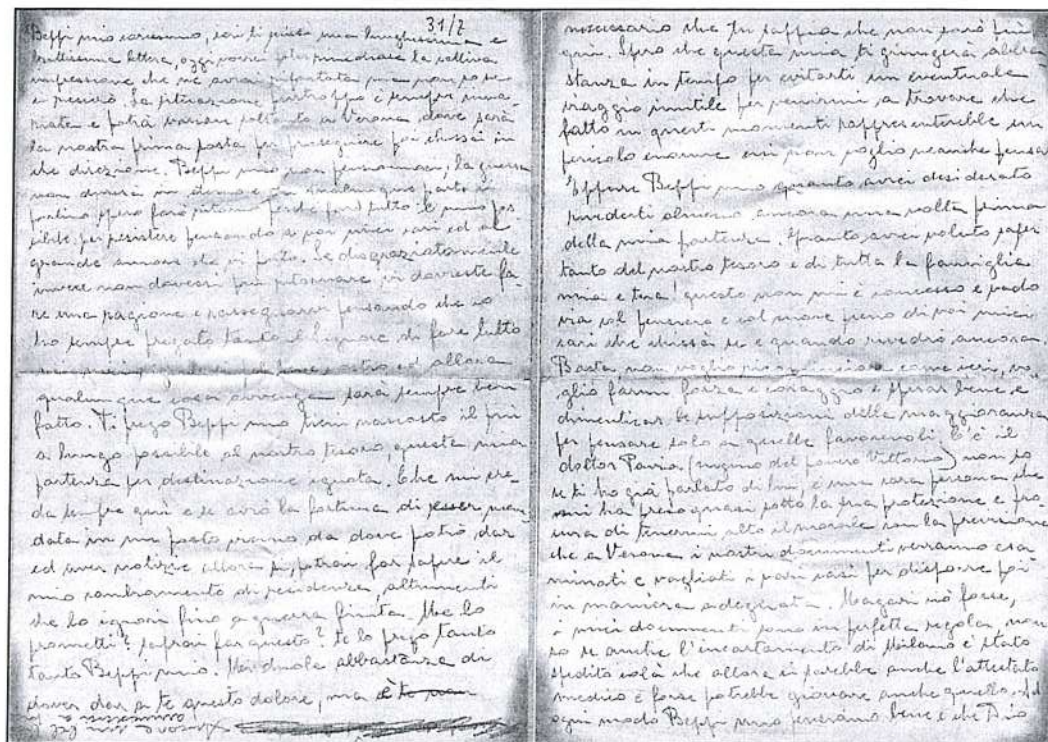 31/7
Beppi mio carissimo, ieri ti scrissi una lunghissima e
bruttissima lettera, oggi vorrei poter rimediare la cattiva
impressione che ne avrai riportata ma non so se
ci riescirò. La situazione purtroppo è sempre immu-
tata e potrà variare soltanto a Verona dove sarà
la nostra prima posta per proseguire poi chissà in
che direzione. Beppi mio non pensiamoci, la guerra
non durerà in eterno e in qualunque parte mi
portino spero farò ritorno perchè farò tutto il mio pos-
sibile per resistere pensando a voi miei cari ed al
grande amore che vi porto. Se disgraziatamente
invece non dovessi più ritornare vi dovreste fa-
re una ragione e rassegnarvi pensando che io
ho sempre pregato tanto il Signore di fare tutto
ed allora
qualunque cosa avvenga sarà sempre ben
fatto. Ti prego Beppi mio tieni nascosto il più
a lungo possibile al nostro tesoro, questa mia
partenza per destinazione ignota. Che mi cre-
da sempre qui e se avrò la fortuna di esser man-
data in un posto vicino da dove potrò dar
ed aver notizie allora sì, potrai far sapere il
mio cambiamento di residenza, altrimenti
che lo ignori fino a guerra finita. Me lo
prometti? Saprai far questo? Te lo prego tanto
tanto Beppi mio. Mi duole abbastanza di
dover dar a te questo dolore, ma è te non
necessario che tu sappia che non sarò più
qui. Spero che questa mia ti giungerà abba-
stanza in tempo per evitarti un eventuale
viaggio inutile per venirmi a trovare che
fatto in questi momenti rappresenterebbe un
pericolo enorme cui non voglio neanche pensar
Eppure Beppi mio quanto avrei desiderato
rivederti almeno ancora una volta prima
della mia partenza. Quanto avrei voluto saper
tanto del nostro tesoro e di tutta la famiglia
mia e tua! questo non mi è concesso e vado
via col pensiero e col cuore pieno di voi miei
cari che chissà se e quando rivedrò ancora.
Basta, non voglio come ieri, vo-
glio farmi forza e coraggio e sperar bene e
dimenticar le supposizioni della maggioranza
per pensare solo a quelle favorevoli. C'è il
dottor Pavia (cugino del povero Vittorio) non so
se ti ho già parlato di lui, è una cara persona che
mi ha preso quasi sotto la sua protezione e pro-
cura di tenermi alto il morale con la previsione
che a Verona i nostri documenti verranno esa
minati e vagliati i vari casi per disporre poi
in maniera adeguata. Magari ciò fosse,
i miei documenti sono in perfetta regola, non
so se anche l'incartamento di Milano è stato
spedito colà che allora ci sarebbe anche l'attestato
medico e forse potrebbe giovare anche quello. Ad
ogni modo Beppi mio speriamo bene e che Dio